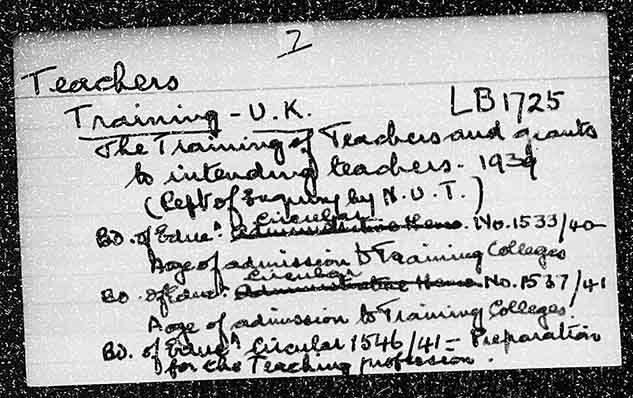 2
Teachers
Training - U.K. LB1725
The Training of Teachers and grants
to intending teachers. 1939
(Rept of Enquiry by N.U.T.)
Circular
BD. of Educn. Administrative Memo. No. 1533/40
Age of admission to Training Colleges
Circular
BD. of Educn. Administrative Memo No. 1537/41
Age of admission to Training Colleges.
BD. of Educn Circular 1546/41 - Preparation
for the Teaching profession.